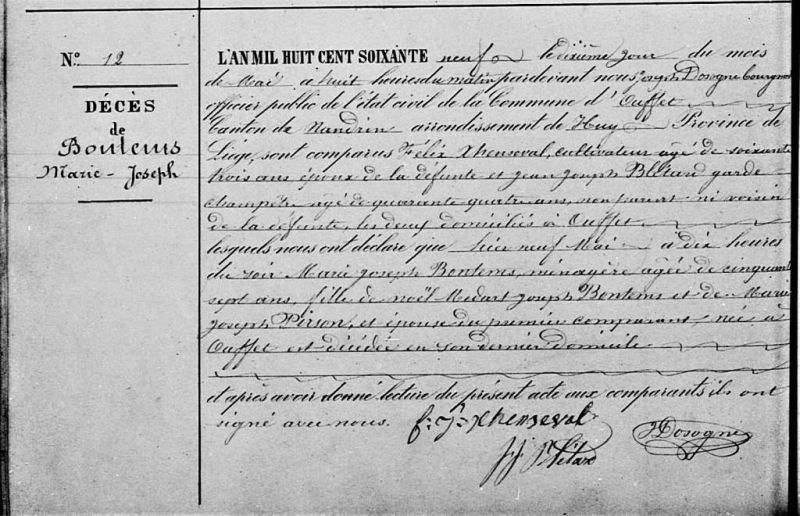 N.o 12
DÉCÈS
de
Bontems
Marie-Joseph
L'AN MIL HUIT CENT SOIXANTE neuf le dixième jour du mois
de Mai à huit heures du matin pardevant nous Joseph Dosogne bourgmes
officier public de l'état civil de la Commune d'Ouffet
Canton de Nandrin arrondissement de Huy Province de
Liége, sont comparus Félix Xhenseval, cultivateur agé de soixante
trois ans époux de la défunte et jean joseph Blétard garde
champêtre agé de quarante quatre ans, non parent ni voisin
de la défunte, les deux domiciliés à Ouffet
lesquels nous ont déclaré que hier neuf Mai à dix heures
du soir Marie joseph Bontems, ménagère agée de cinquant
sept ans, fille de noël Medart joseph Bontems et de Marie
joseph Pirson, et épouse du premier comparant, née à
Ouffet est décédée en son dernier domicile
et après avoir donné lecture du présent acte aux comparants ils ont
signé avec nous. f: J: xhenseval
JDosogne
jj Blétard